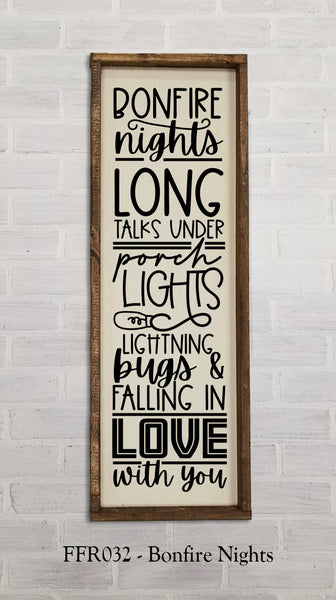 BONFIRE
nights
LONG
TALKS UNDER
porch
LIGHTS
LIGHTNING
bugs &
FALLING IN
LOVE
with you
FFR032 - Bonfire Nights